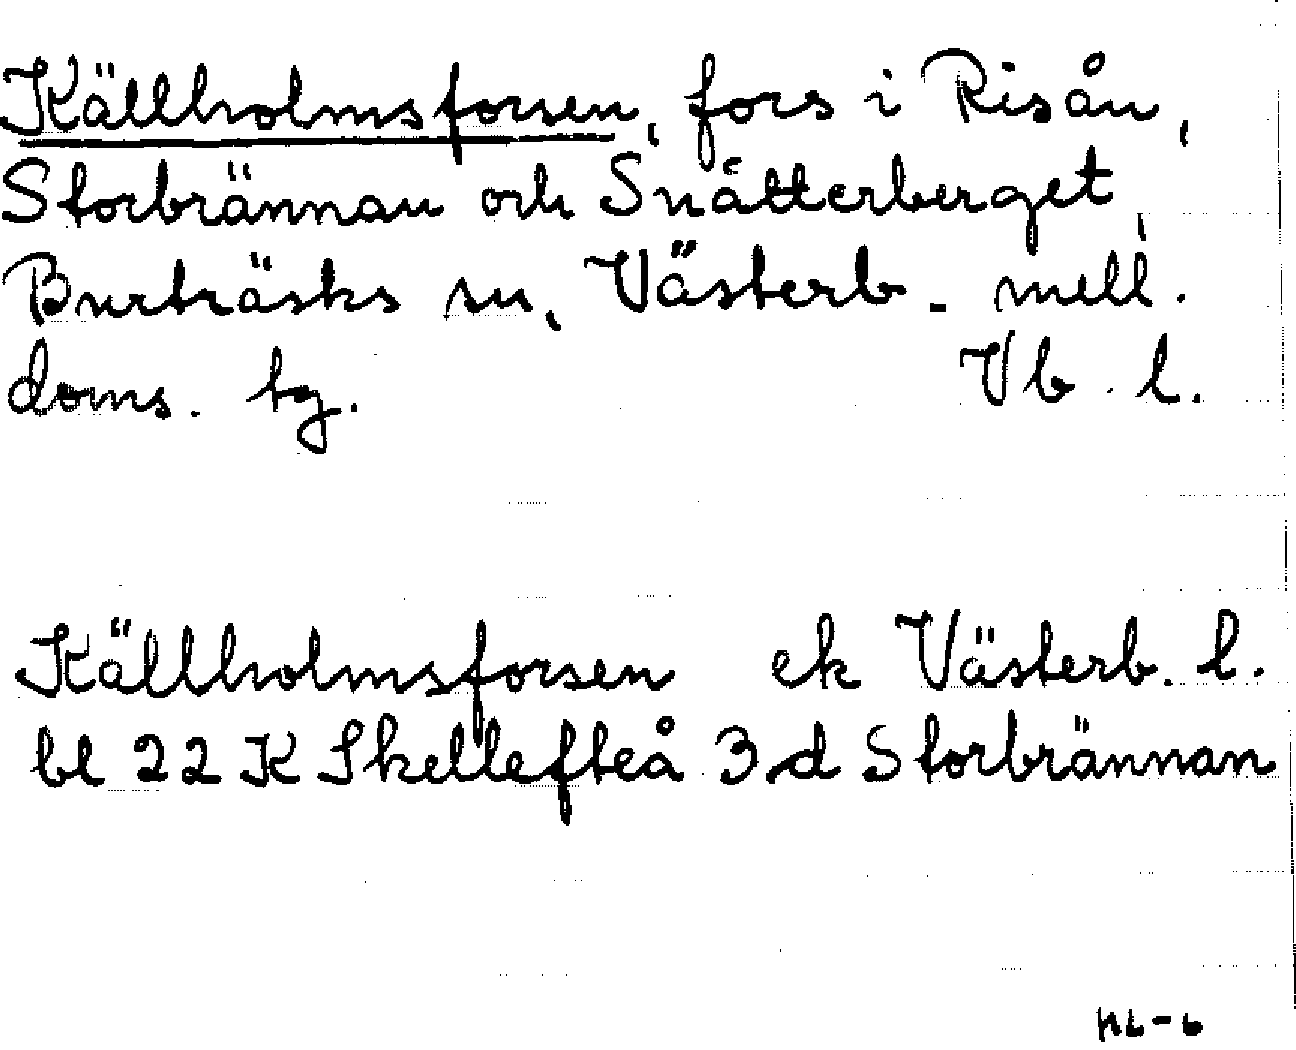 Källholmsforsen, fors i Risån,
Storbrännan och Snåtterberget,
Burträsks sn, Västerb. mell.
doms. tg. Vb. l.
Källholmsforsen ek Västerb. l.
bl 22 K Skellefteå 3 d Storbrännan